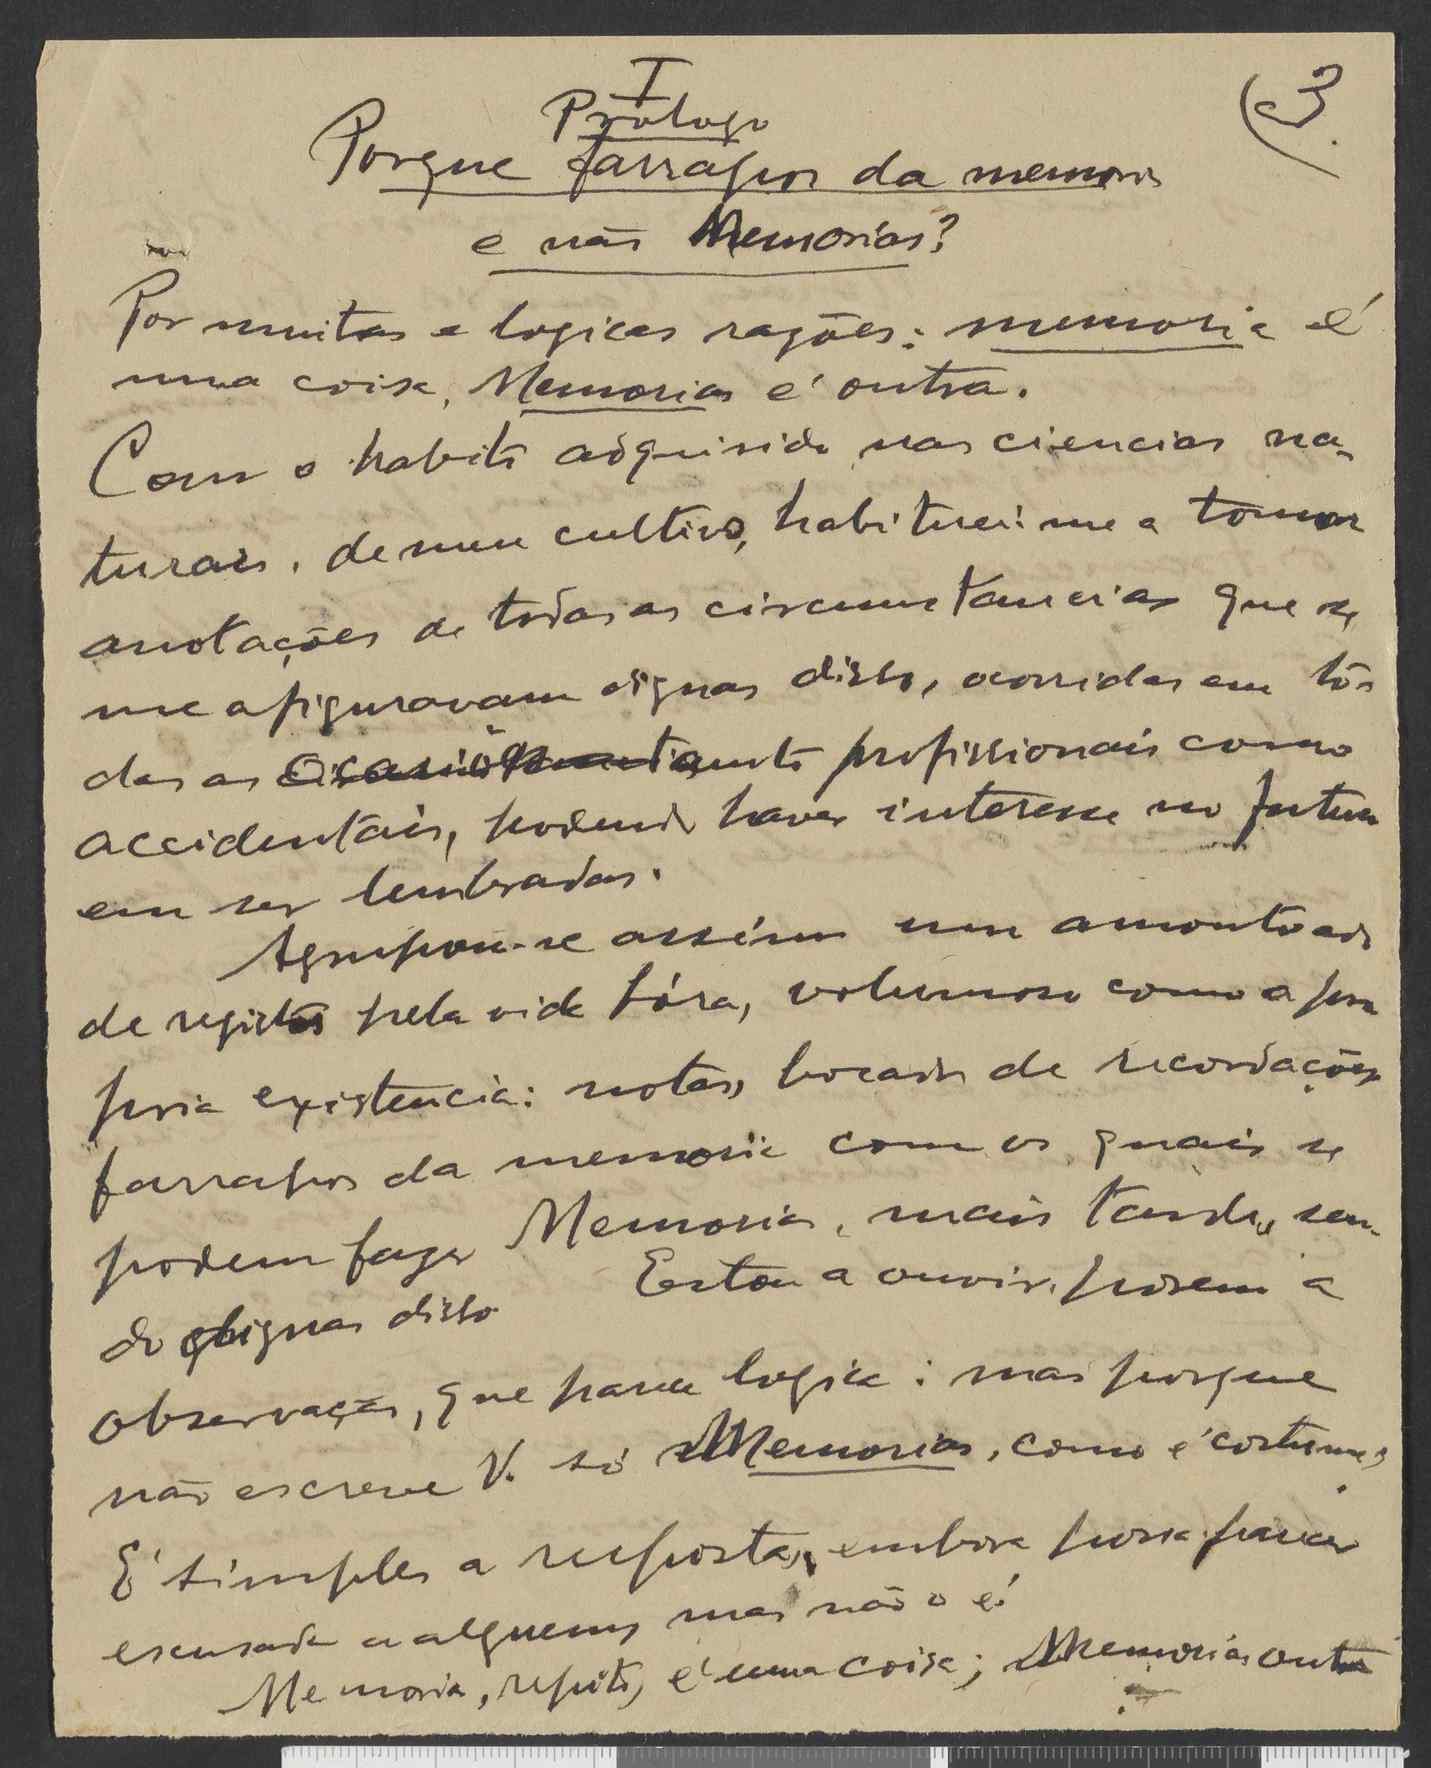 I
3.
Prologo
Porque farrapos da memoria
e não Memorias?
Por muitas e logicas razões: memoria é
uma coisa, Memorias é outra.
Com o habito adquirido nas ciencias na-
turais, de meu cultivo, habituei-me a tomar
anotações de todas as circumstancias que se
me afiguravam dignas disso, ocorridas em tô-
das as tanto profissionais como
accidentais, podendo haver interesse no futuro
em ser lembradas.
Agrupou-se assim um amontoado
de registos pela vida fóra, volumoso como a pro
pria existencia: notas, bocados de recordações
farrapos da memoria com os quais se
podem fazer Memorias, mais tarde, sen-
do dignas disso
Estou a ouvir, porem a
observação, que parece logica: mas porque
não escreve V. só Memorias, como é costume?
É simples a resposta, embora possa parecer
escusada a alguem, mas não o é
Memoria, repito, é uma coisa; Memorias outra